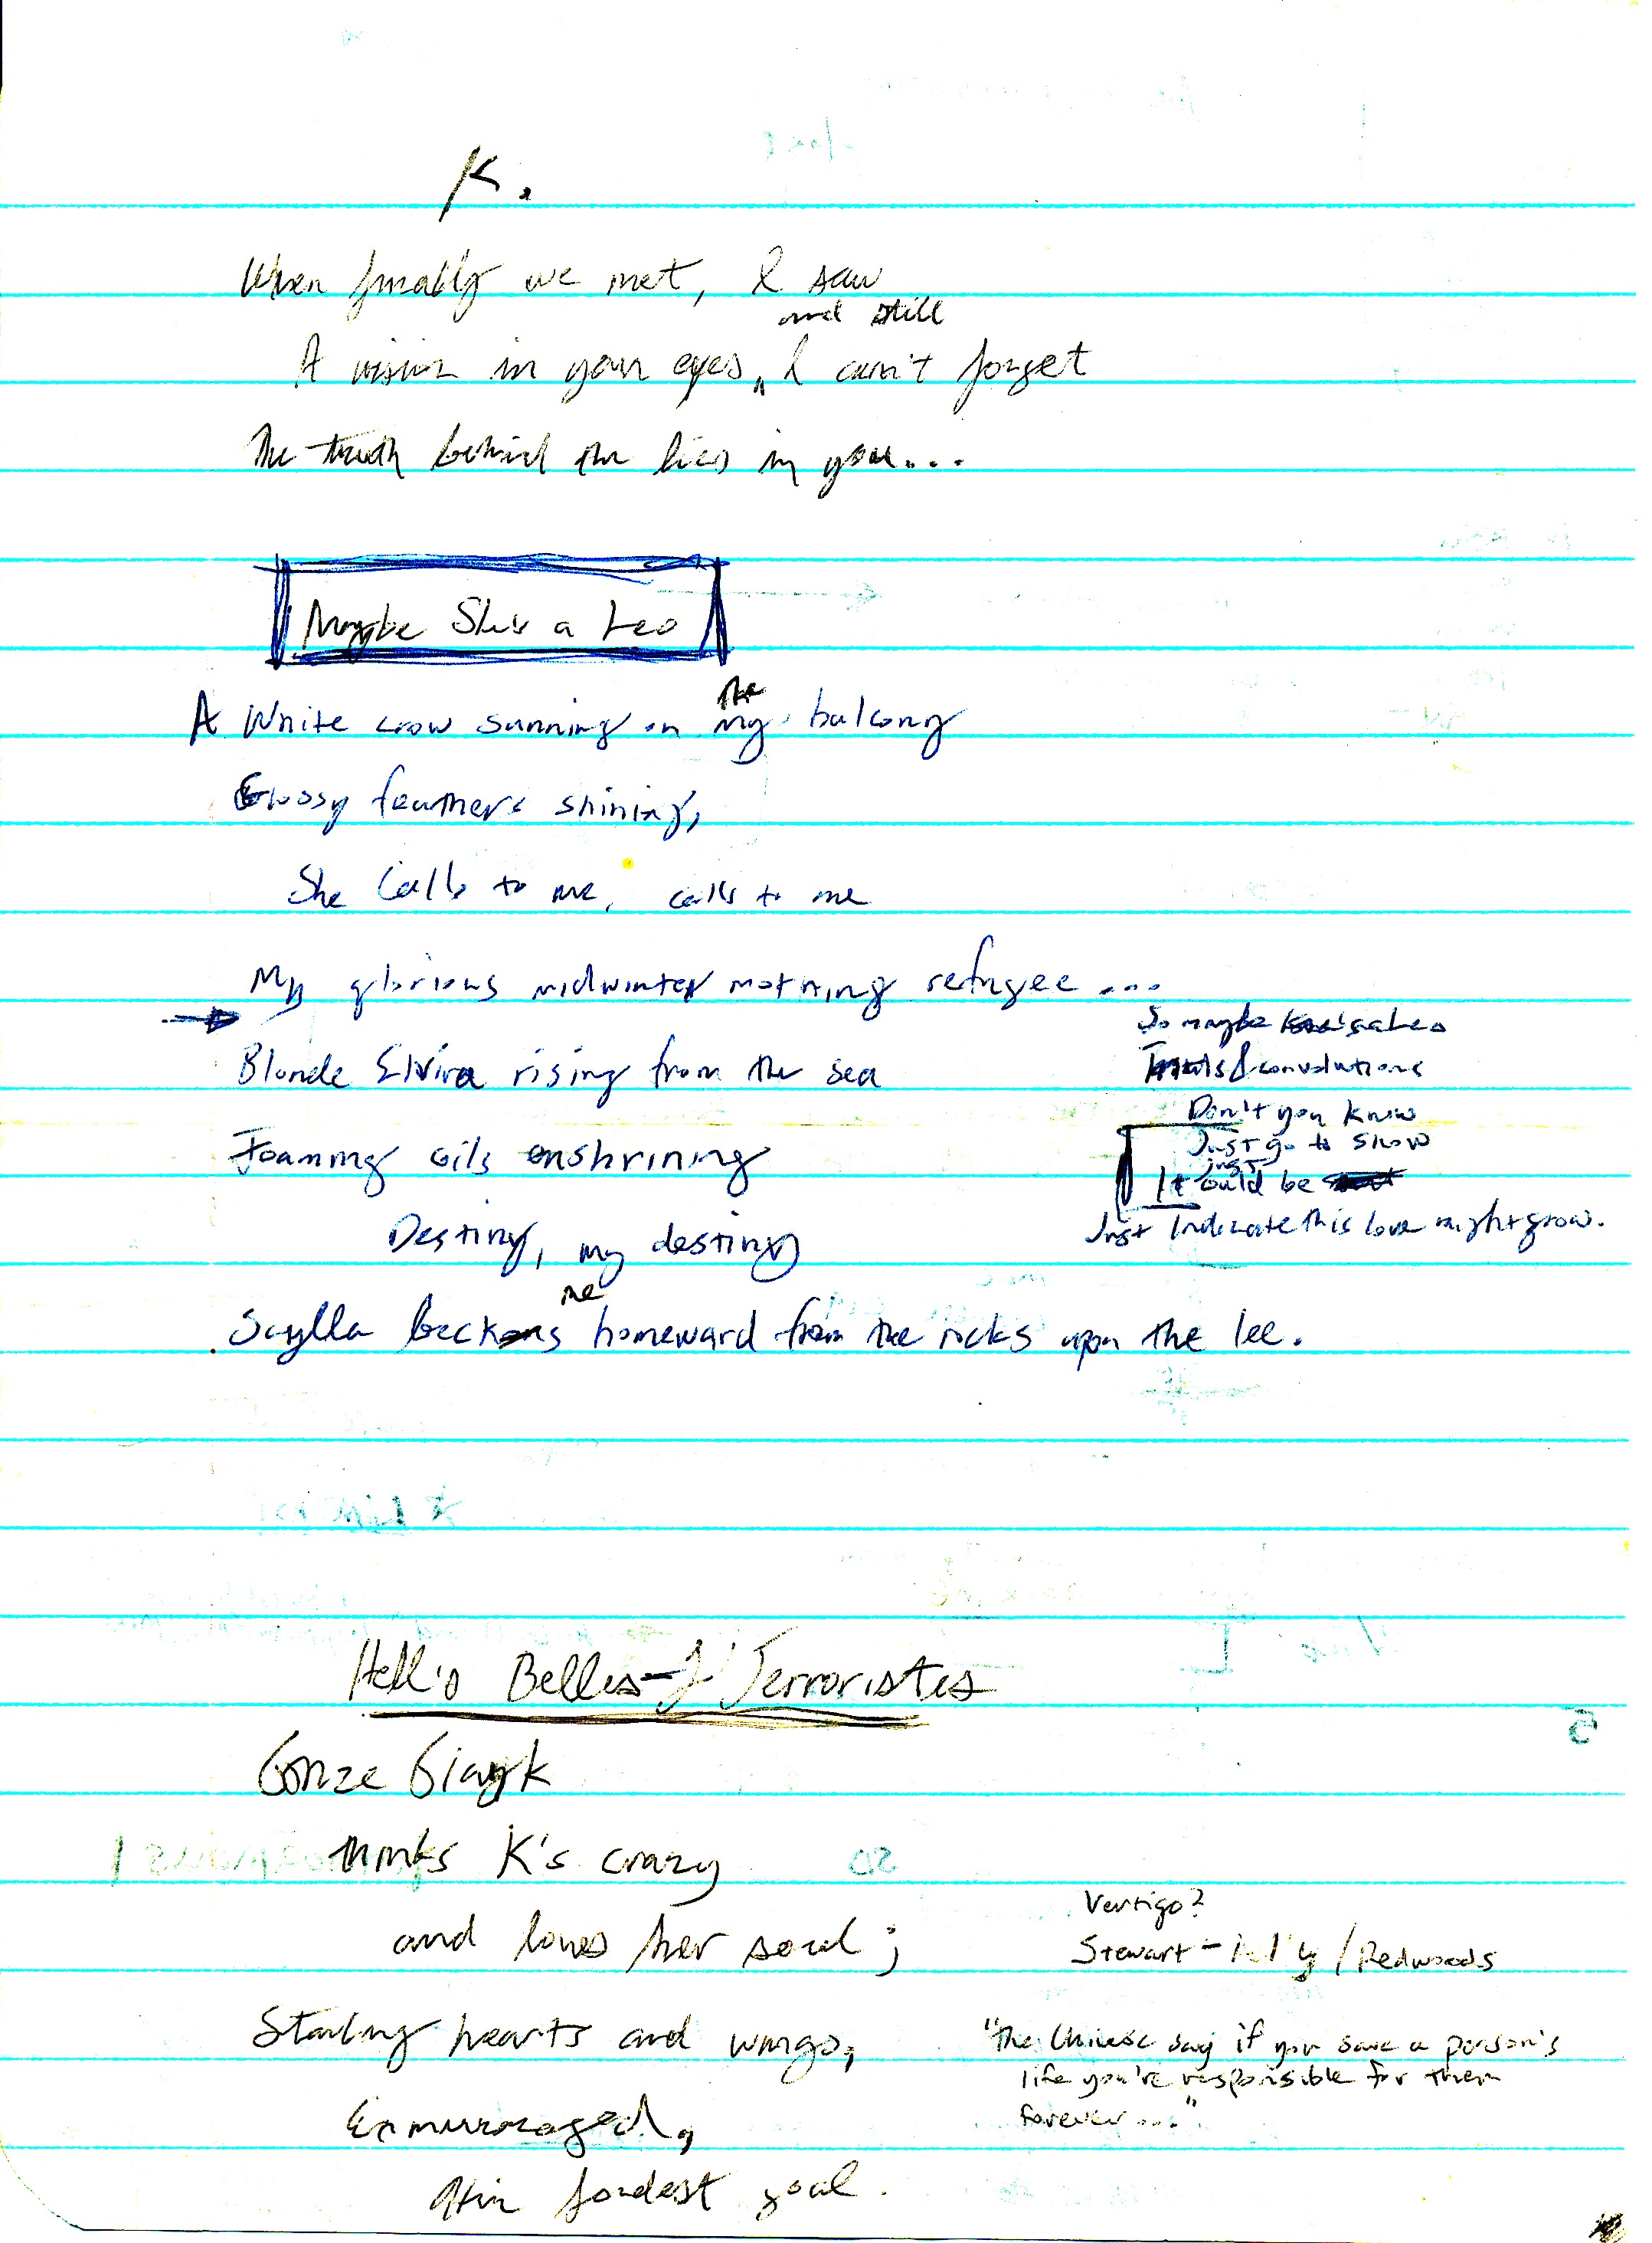 K.
When finally we met, I saw
and still
A vision in your eyes, I can't forget
The truth behind the lies in you...
Maybe She's a Leo
the
A White crow sunning on my balcony
Glossy feathers shining,
She Calls to me, calls to me
My glorious midwinter morning refugee...
Blonde Elvira rising from the sea
Foaming oils enshrining
Destiny, my destiny
me
Scylla beckons homeward from the rocks upon the lee.
So maybe she's a Leo
& convolutions
Don't you know
Just go to show
just
It could be
Just Indicate this love might grow.
Hell's Belles-J' Terroristes
Gonze
thinks K's crazy
and loves her soul;
Starling hearts and wings,
Enmirraged,
Her fondest goal.
Vertigo?
Stewart - / Redwoods
"The Chinese say if you save a person's
life you're responsible for them
forever..."